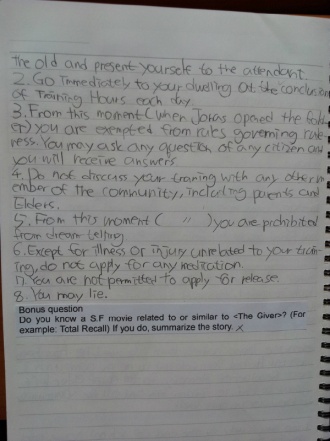 the old and present yourself to the attendant.
2. Go immediately to your dwelling at the conclusion
of Training Hours each day.
3. From this moment (when Jonas opened the fold
er) you are exempted from rules governing rude
ness. You may ask any question of any citizen and
you will receive answers
4. Do not discuss your training with any other m
ember of the community, including parents and
Elders.
5. From this moment ( 〃 ) you are prohibited
from dream telling
6. Except for illness or injury unrelated to your train
ing, do not apply for any medication.
7. You are not permitted to apply for release.
8. You may lie.
Bonus question
Do you know a S.F movie related to or similar to <The Giver>? (For
example: Total Recall) If you do, summarize the story. X